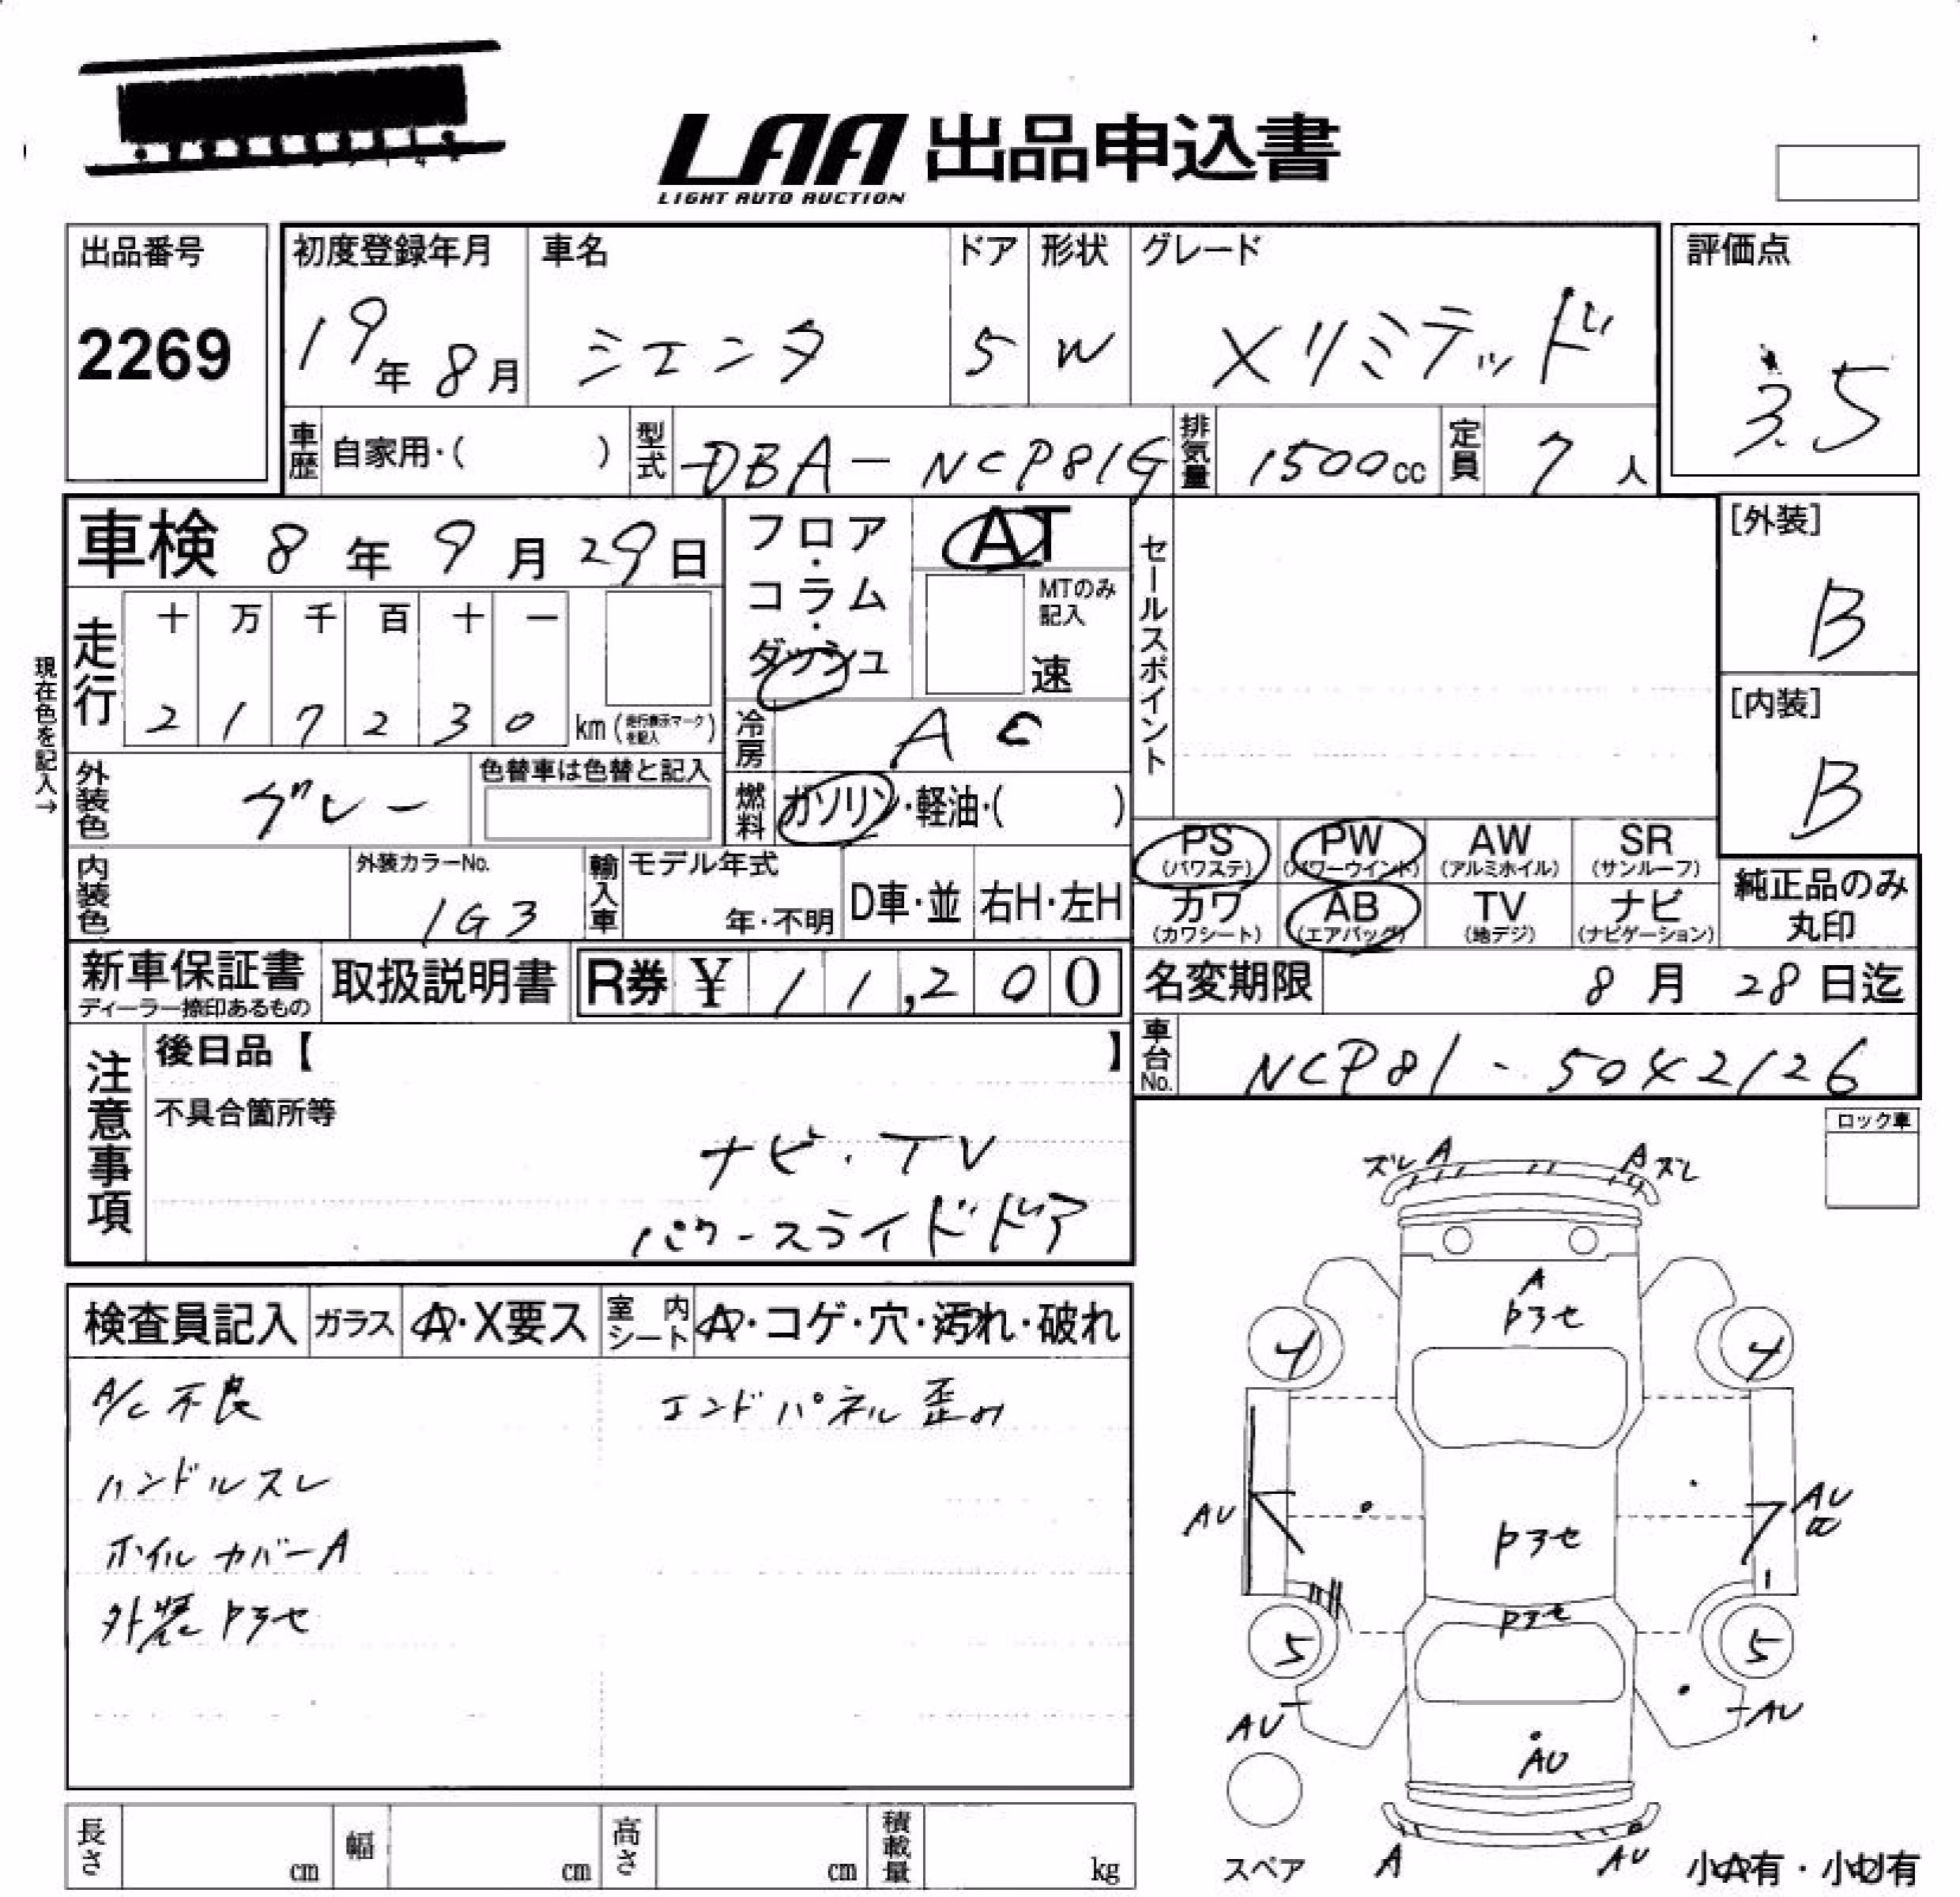 LAA 出品申込書
LIGHT AUTO AUCTION
出品番号
2269
初度登録年月
19年 8月
車名
シエンタ
ドア
5
形状
W
グレード
Xリミテッド
評価点
3.5
車歴 自家用・( )
型式 DBA-NCP81G
排気量 1500cc
定員 7人
車検 8年 9月 29日
フロア・コラム・ダッシュ
AT
MTのみ記入
速
セールスポイント
[外装]
B
[内装]
B
現在色を記入→
走行
十 万 千 百 十 一
2 1 7 2 3 0 km (走行表示マークを記入)
冷房 AC
外装色 グレー
色替車は色替と記入
燃料 ガソリン・軽油・( )
内装色
外装カラーNo.
1G3
輸入車
モデル年式
年・不明
D車・並
右H・左H
PS (パワステ)
PW (パワーウインド)
AW (アルミホイル)
SR (サンルーフ)
カワ (カワシート)
AB (エアバッグ)
TV (地デジ)
ナビ (ナビゲーション)
純正品のみ丸印
新車保証書
ディーラー捺印あるもの
取扱説明書
R券 ¥ 11,200
名変期限 8月 28日迄
車台No. NCP81-5042126
注意事項
後日品【 】
不具合箇所等
ナビ・TV
パワースライドドア
ロック車
検査員記入
ガラス A・X要ス
室内シート A・コゲ・穴・汚れ・破れ
A/C不良
エンドパネル歪み
ハンドルスレ
ホイルカバーA
外装色アセ
ズレ A
A ズレ
A
色アセ
4
4
AU
AU
色アセ
色アセ
5
5
AU
AU
AU
スペア
A
AU
小A有・小U有
長さ cm
幅 cm
高さ cm
積載量 kg